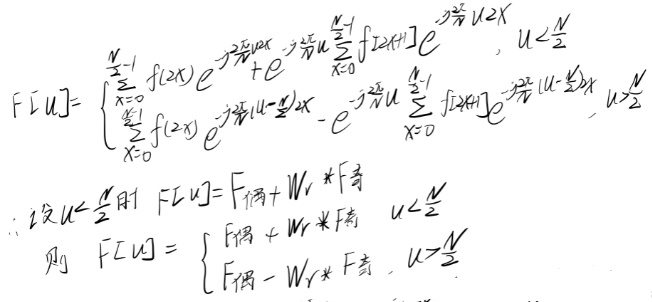 F[u]= { Σ_{x=0}^{N/2-1} f(2x) e^{-j 2π/N u2x} + e^{-j 2π/N u} Σ_{x=0}^{N/2-1} f[2x+1] e^{-j 2π/N u2x} , u<N/2
Σ_{x=0}^{N/2-1} f(2x) e^{-j 2π/N (u-N/2)2x} - e^{-j 2π/N u} Σ_{x=0}^{N/2-1} f[2x+1] e^{-j 2π/N (u-N/2)2x} , u>N/2
∴设u<N/2时 F[u]=F偶+Wr*F奇
则 F[u]= { F偶+Wr*F奇 u<N/2
F偶-Wr*F奇 , u>N/2